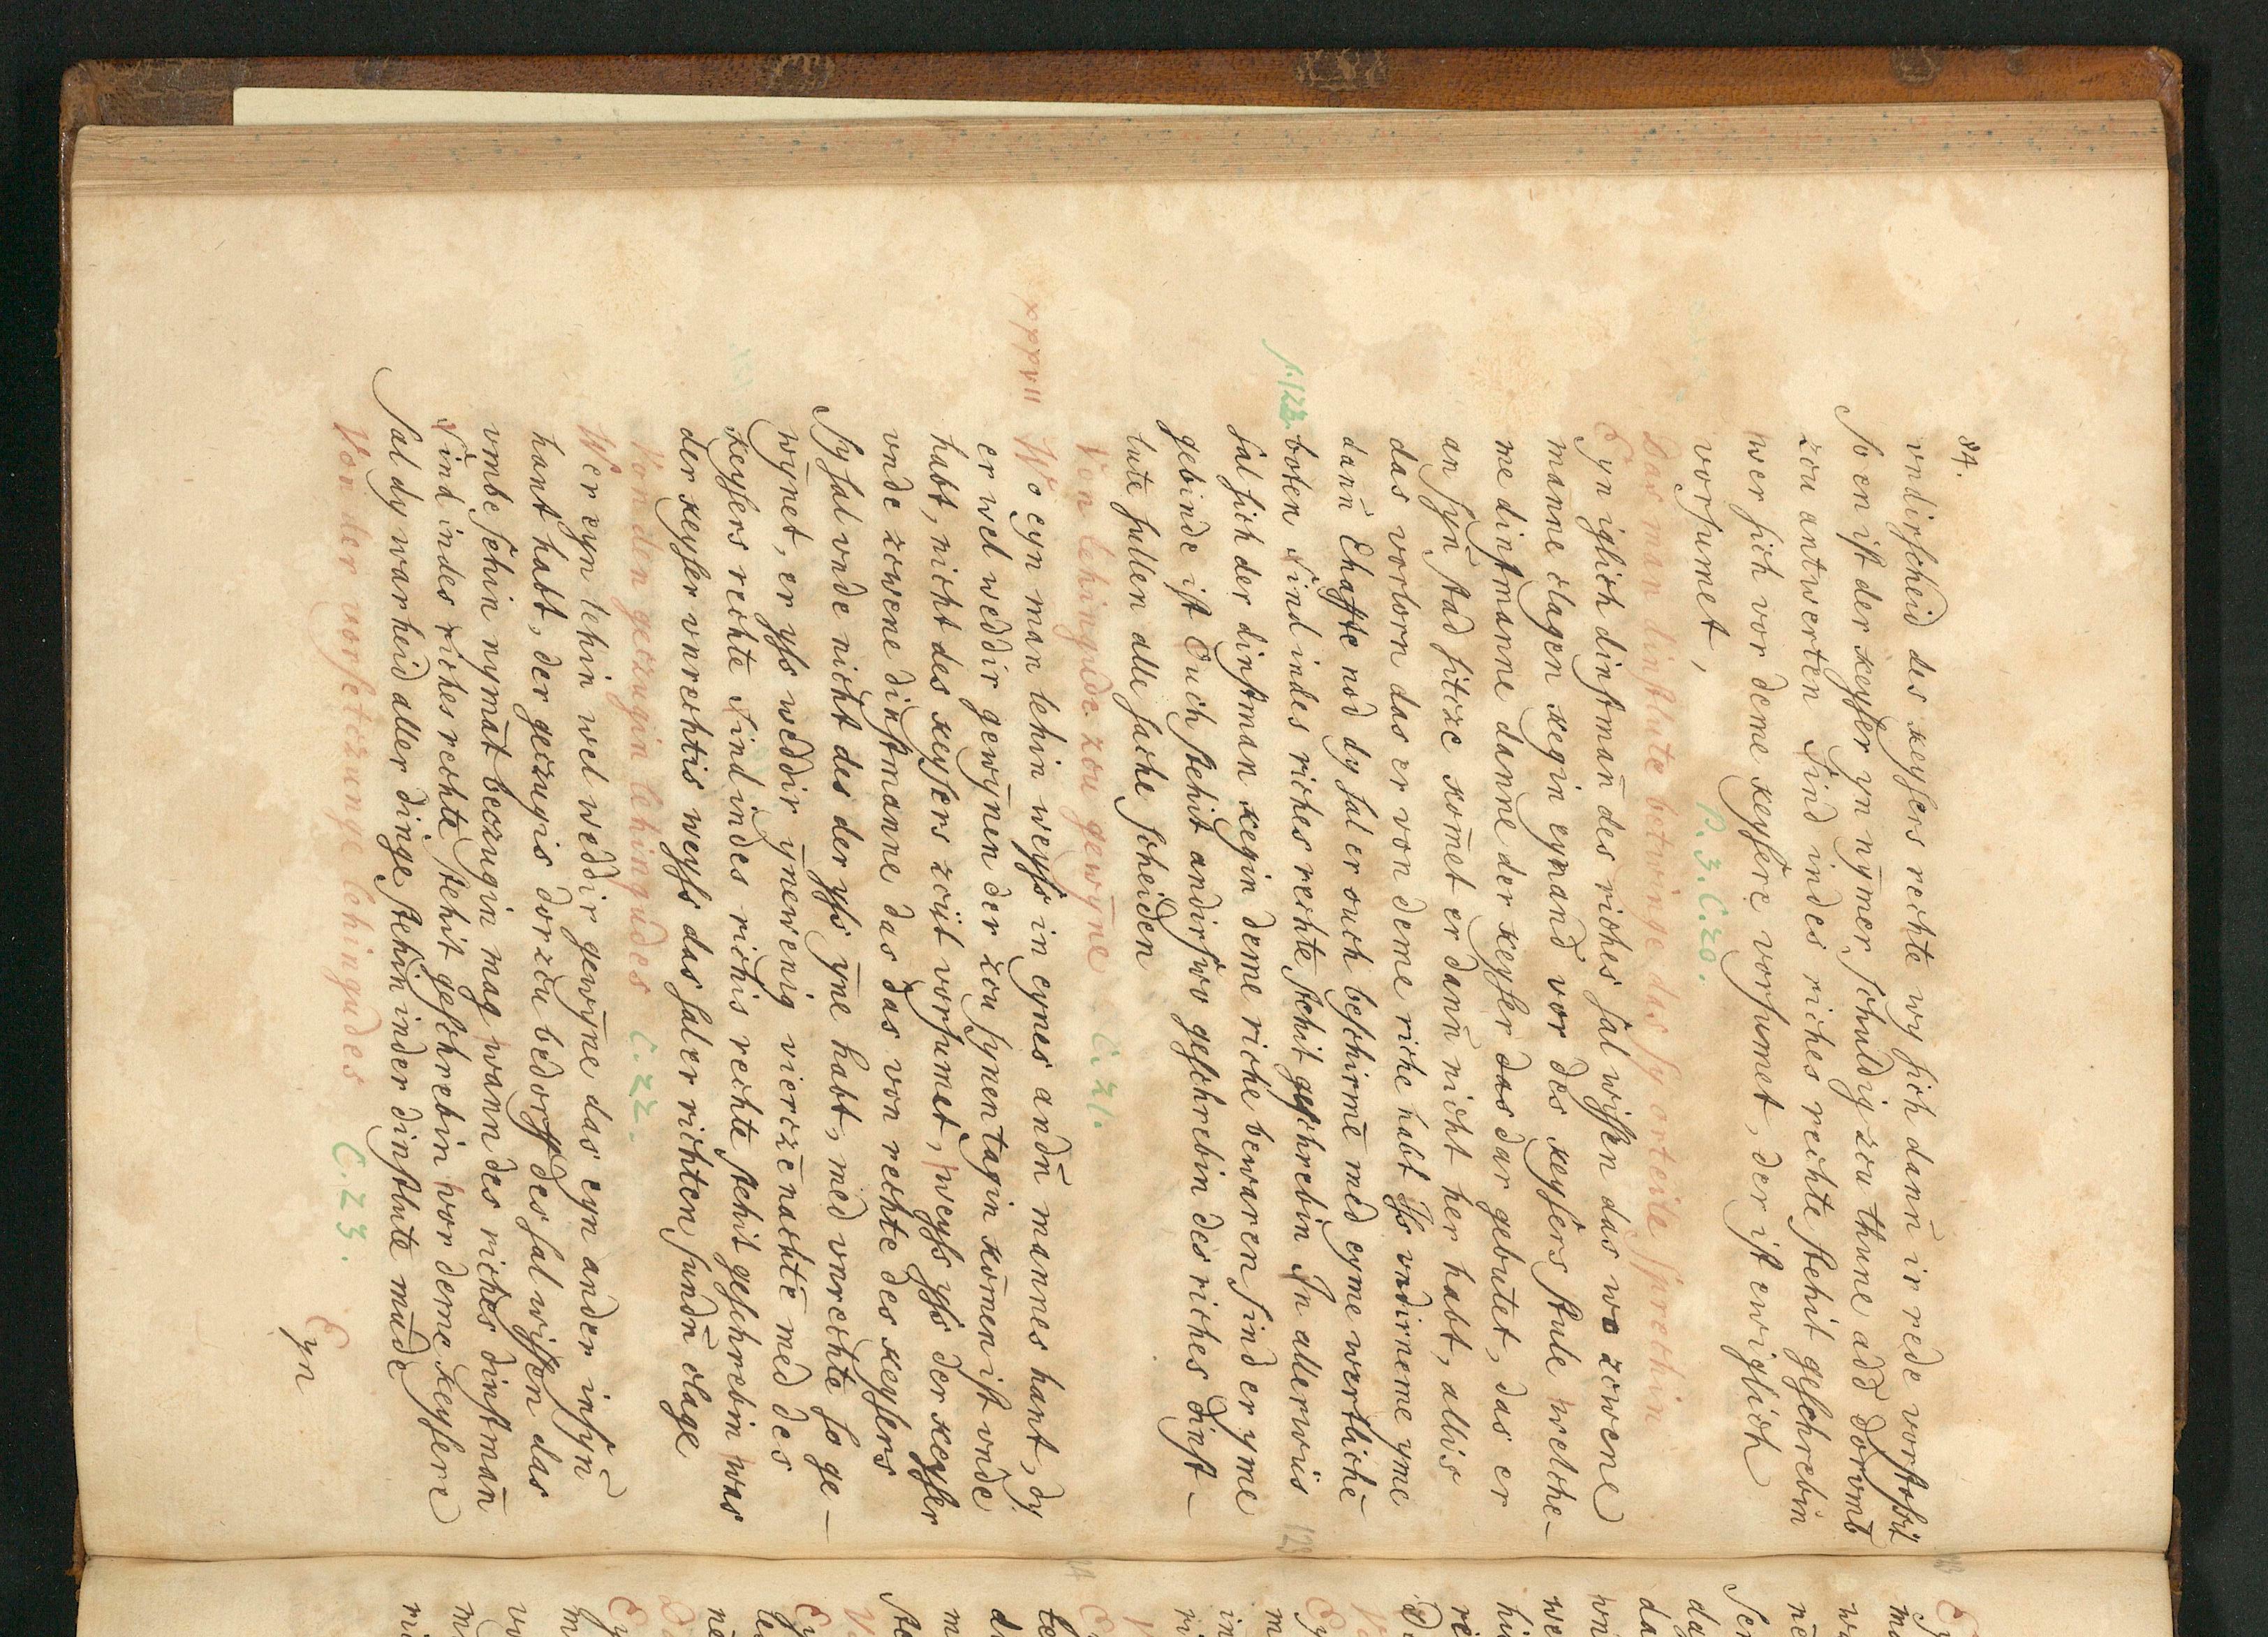 84.
vndirscheid des keysers rechte wy sich dann̄ ir rede vorstohit
So en ist der keyser yn nȳmer schuldig zcu thune add dorumb
zcu antwerten Sind indes riches rechte stehit geschrebin
wer sich vor deme keysere vorsumet, der ist ewiglich
vorsumet,
P. 3. C. 20.
Das man dinstlute betwinge das sy orteile sprechin
Eyn iglich dinstman̄ des riches sal wissen das wo zcwene
man̄ne clagen kegin eynand vor des keysers stule welche-
me dinstmanne dan̄ne der keyser das dar gebutet, das er
an syn̄ stad sitcze kōmet er dann̄ nicht her habt, allis
das vorlorn das er von deme riche habt Iss vndirneme yme
dann̄ Ehaffte nod dy sal er ouch beschirmē med eyme wertlichē
p. 123. boten Sind indes riches rechte stehit geschrebin In allerwis
sal sich der dinstman kegin deme riche bewaren sind er yme
gebinde ist Ouch stehit andirswo geschrebin des riches dinst-
lute sullen alle sache scheiden
Von lehingude zcu gewȳne C. 21.
xxxvii Wo eyn man lehin weyss in eynes andn̄ mannes hant, dy
er wel weddir gewȳnen der zcu synen tagin kōmen ist vnde
habt, nicht des keysers zciit vorsumet, weyss yss der keyser
vnde zcwene dinstmanne das das von rechte des keysers
Sy sal vnde nicht des der yss ȳne habt, med vnrechte so ge-
wȳnet, er yss weddir ynewenig vierczē nachtē med des
keysers rechte Sind indes richis rechte stehit geschrebin was
der keyser vnrechtis weyss das sal er richten sundn̄ clage
Von den geczugin lehingudes C. 22.
Wer eyn lehin wel weddir gewȳne das eyn ander in syn̄
hant habt, der geczugis dorzcu bedorff des sal wissen das
vmbe lehin nymāt beczugin mag wann des riches dinstman̄
Sind indes riches rechte stehit geschrebin vor deme keysere
sal dy warheid aller dinge stehin in der dinstlute mūde
Von der vorsetczunge lehingudes C. 23.
Eyn